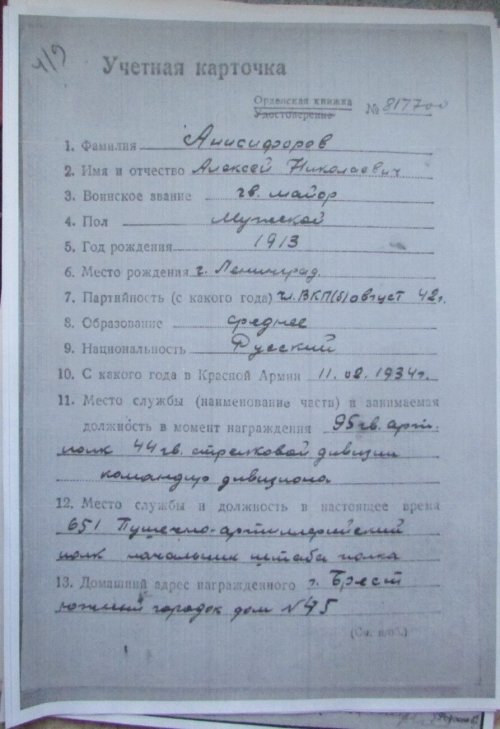 4/9
Учетная карточка
Орденская книжка
Удостоверение
№ 817700
1. Фамилия Анисифоров
2. Имя и отчество Алексей Николаевич
3. Воинское звание гв. майор
4. Пол Мужской
5. Год рождения 1913
6. Место рождения г. Ленинград
7. Партийность (с какого года) чл. ВКП(б) август 42 г.
8. Образование среднее
9. Национальность Русский
10. С какого года в Красной Армии 11.02.1934 г.
11. Место службы (наименование части) и занимаемая
должность в момент награждения 95 гв. арт-
полк 44 гв. стрелковой дивизии
командир дивизиона
12. Место службы и должность в настоящее время
651 Пушечно-артиллерийский
полк начальник штаба полка
13. Домашний адрес награжденного г. Брест
южный городок дом № 45
(См. н/об.)